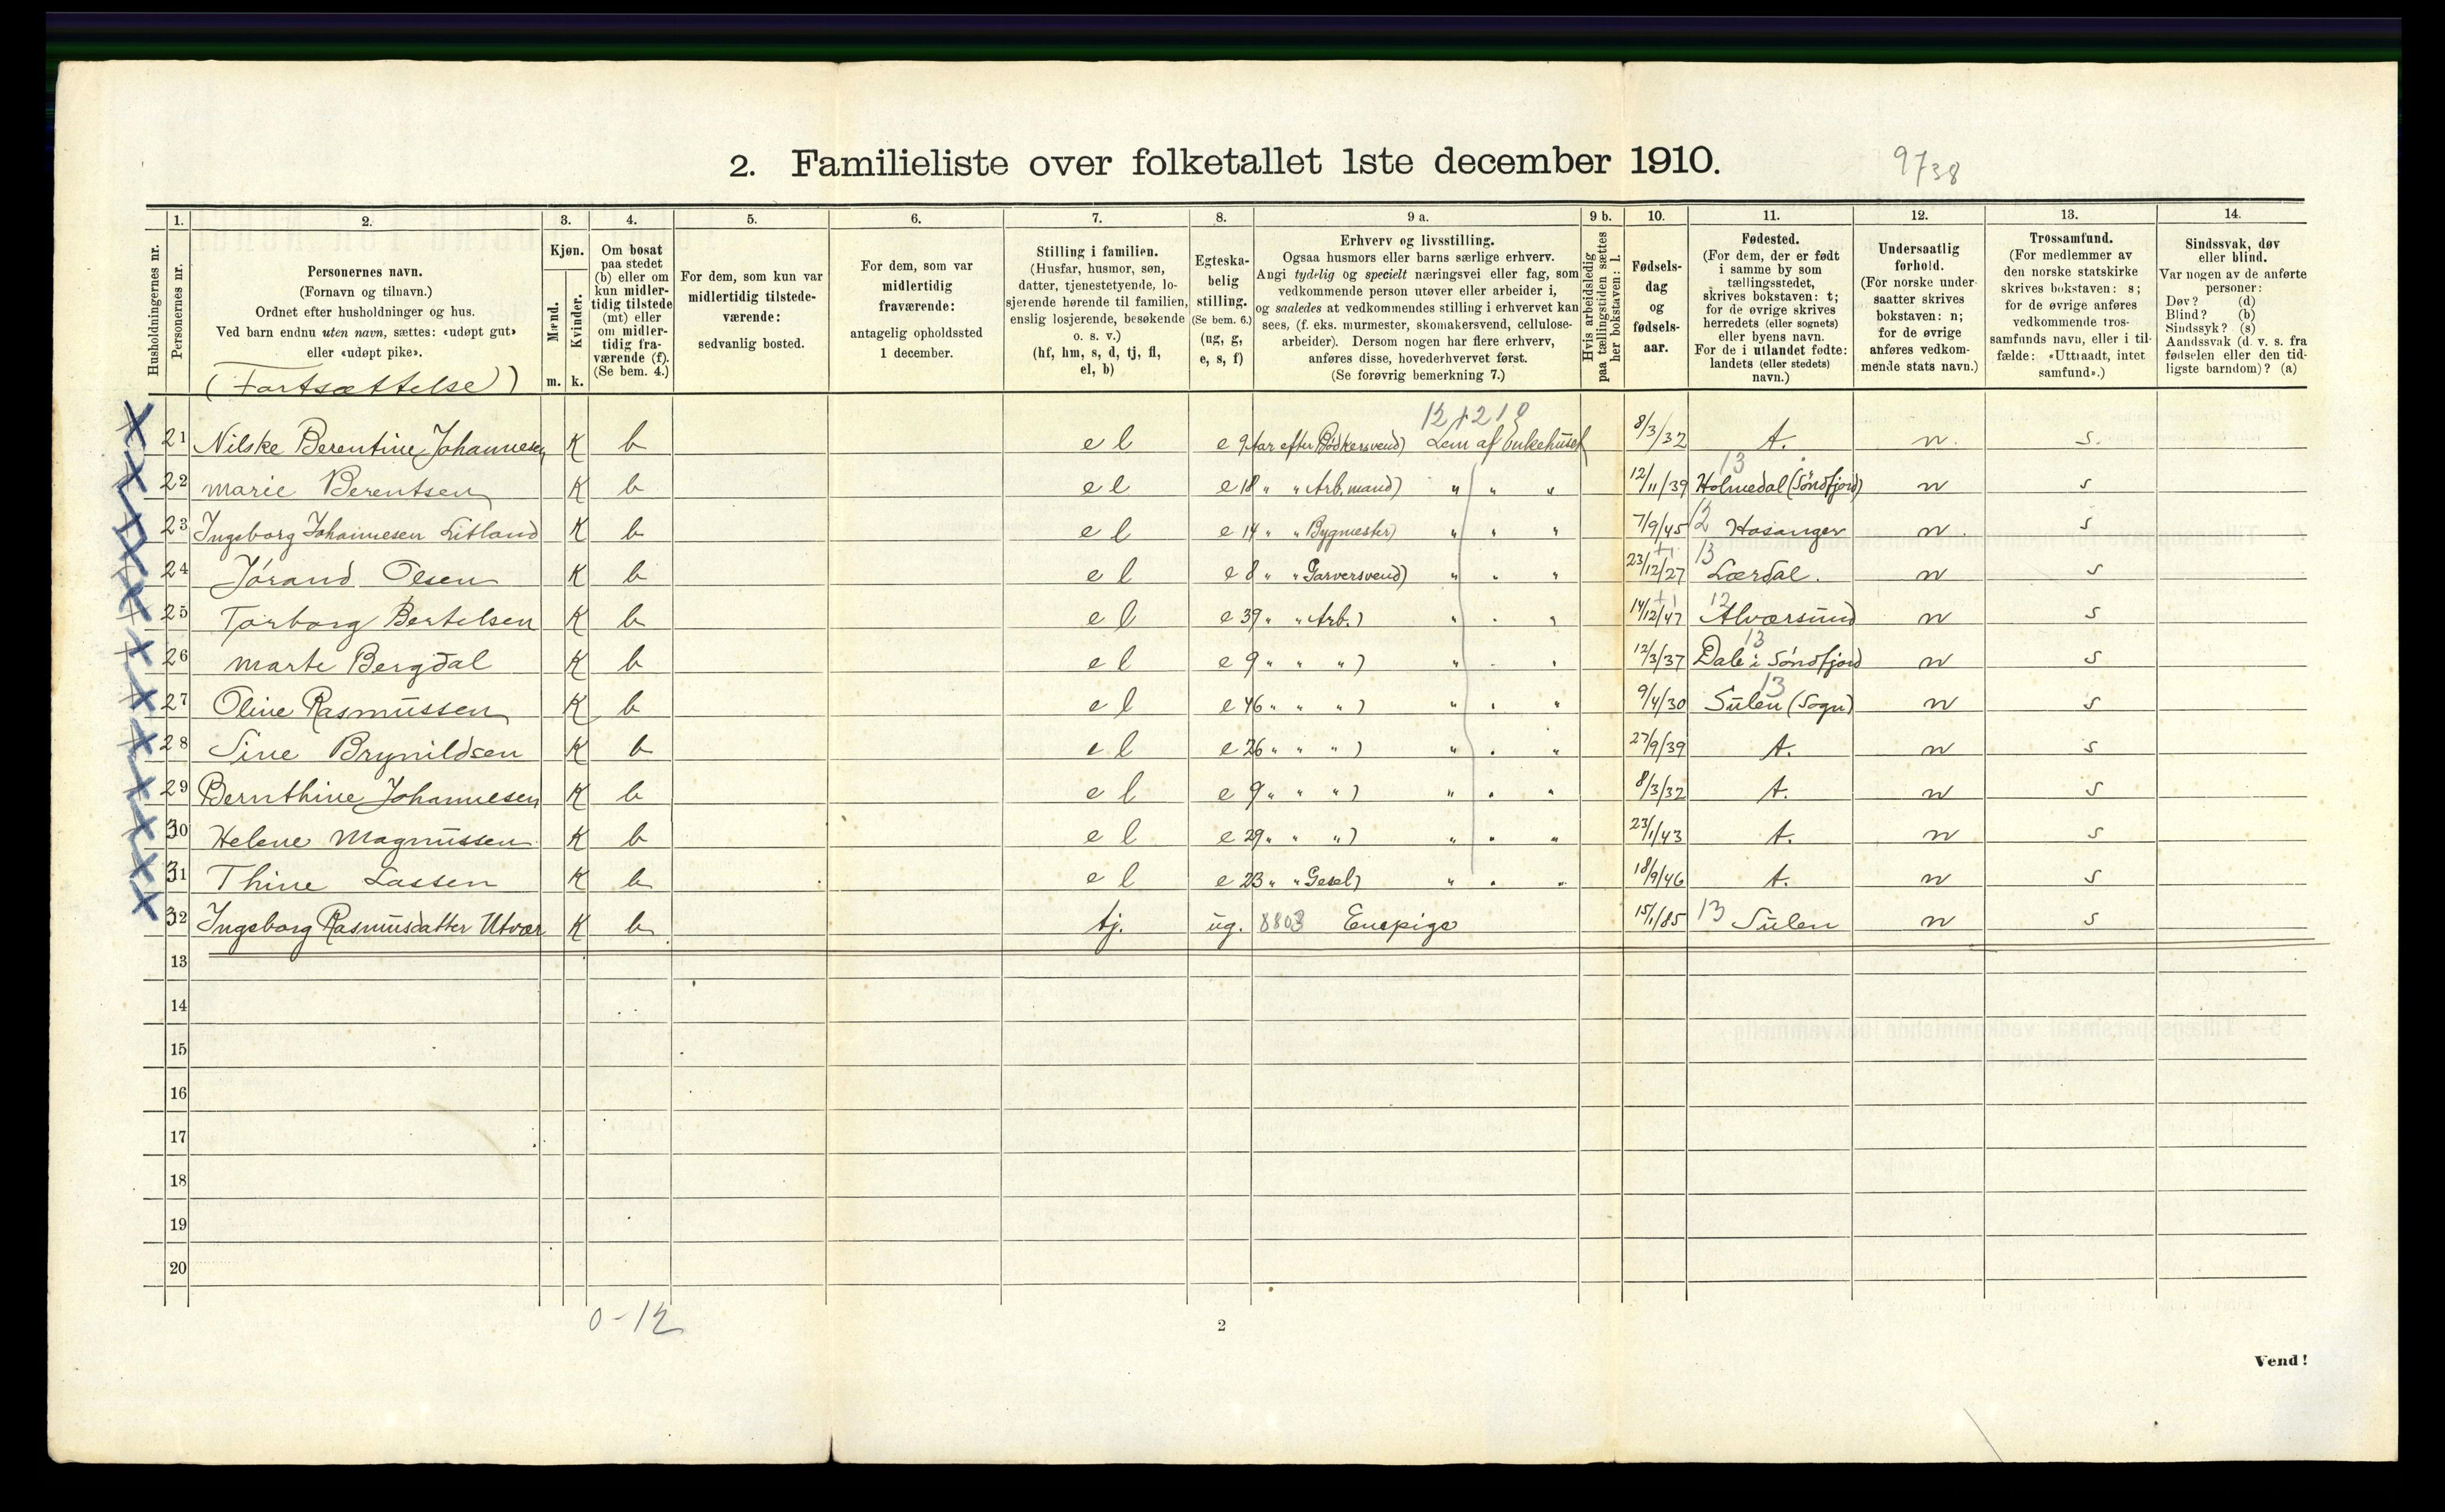 2. Familieliste over folketallet 1ste december 1910.
9738
Husholdningernes nr.
1.
Personernes nr.
2.
Personernes navn.
(Fornavn og tilnavn.)
Ordnet efter husholdninger og hus.
Ved barn endnu uten navn, sættes: «udøpt gut»
eller «udøpt pike».
(Fortsættelse)
3.
Kjøn.
Mænd.
Kvinder.
m. k.
4.
Om bosat
paa stedet
(b) eller om
kun midler-
tidig tilstede
(mt) eller
om midler-
tidig fra-
værende (f).
(Se bem. 4.)
5.
For dem, som kun var
midlertidig tilstede-
værende:
sedvanlig bosted.
6.
For dem, som var
midlertidig
fraværende:
antagelig opholdssted
1 december.
7.
Stilling i familien.
(Husfar, husmor, søn,
datter, tjenestetyende, lo-
sjerende hørende til familien,
enslig losjerende, besøkende
o. s. v.)
(hf, hm, s, d, tj, fl,
el, b)
8.
Egteska-
belig
stilling.
(Se bem. 6.)
(ug, g,
e, s, f)
9 a.
Erhverv og livsstilling.
Ogsaa husmors eller barns særlige erhverv.
Angi tydelig og specielt næringsvei eller fag, som
vedkommende person utøver eller arbeider i,
og saaledes at vedkommendes stilling i erhvervet kan
sees, (f. eks. murmester, skomakersvend, cellulose-
arbeider). Dersom nogen har flere erhverv,
anføres disse, hovederhvervet først.
(Se forøvrig bemerkning 7.)
9 b.
Hvis arbeidsledig
paa tællingstiden sættes
her bokstaven: l.
10.
Fødsels-
dag
og
fødsels-
aar.
11.
Fødested.
(For dem, der er født
i samme by som
tællingsstedet,
skrives bokstaven: t;
for de øvrige skrives
herredets (eller sognets)
eller byens navn.
For de i utlandet fødte:
landets (eller stedets)
navn.)
12.
Undersaatlig
forhold.
(For norske under-
saatter skrives
bokstaven: n;
for de øvrige
anføres vedkom-
mende stats navn.)
13.
Trossamfund.
(For medlemmer av
den norske statskirke
skrives bokstaven: s;
for de øvrige anføres
vedkommende tros-
samfunds navn, eller i til-
fælde: «Uttraadt, intet
samfund».)
14.
Sindssvak, døv
eller blind.
Var nogen av de anførte
personer:
Døv? (d)
Blind? (b)
Sindssyk? (s)
Aandssvak (d. v. s. fra
fødselen eller den tid-
ligste barndom)? (a)
21 Nilske Berentine Johannesen K b e l e 9 Aar efter Bødkersvend) Lem af Enkehuset 8/3/32 t. n. s.
13
22 Marie Berentsen K b e l e 18 " " Arb.mand) " " " 12/11/39 Holmedal (Söndfjord) n s
23 Ingeborg Johannesen Litland K b e l e 14 " " Bygmester) " " " 7/9/45 12 Hosanger n. s
24 Jórand Olsen K b e l e 8 " " Garversvend) " " " 23/12/27 13 Lærdal. n s
25 Torborg Bertelsen K b e l e 39 " " Arb.) " " " 14/12/47 12 Alværsund n s
13
26 Marte Bergdal K b e l e 9 " " " ) " " " 12/3/37 Dale i Söndfjord n s
13
27 Oline Rasmussen K b e l e 46 " " " ) " " " 9/4/30 Sulen (Sogn) n s
28 Sine Brynildsen K b e l e 26 " " " ) " " " 27/9/39 t. n s
29 Bernthine Johannesen K b e l e 9 " " " ) " " " 8/3/32 t. n s
30 Helene Magnussen K b e l e 29 " " " ) " " " 23/1/43 t. n s
31 Thine Lassen K b e l e 23 " " Gesel) " " " 18/9/46 t. n s
32 Ingeborg Rasmusdatter Utvær K b tj. ug. 8803 Enepige 15/1/85 13 Sulen n s
13
14
15
16
17
18
19
20
0-12
2
Vend!